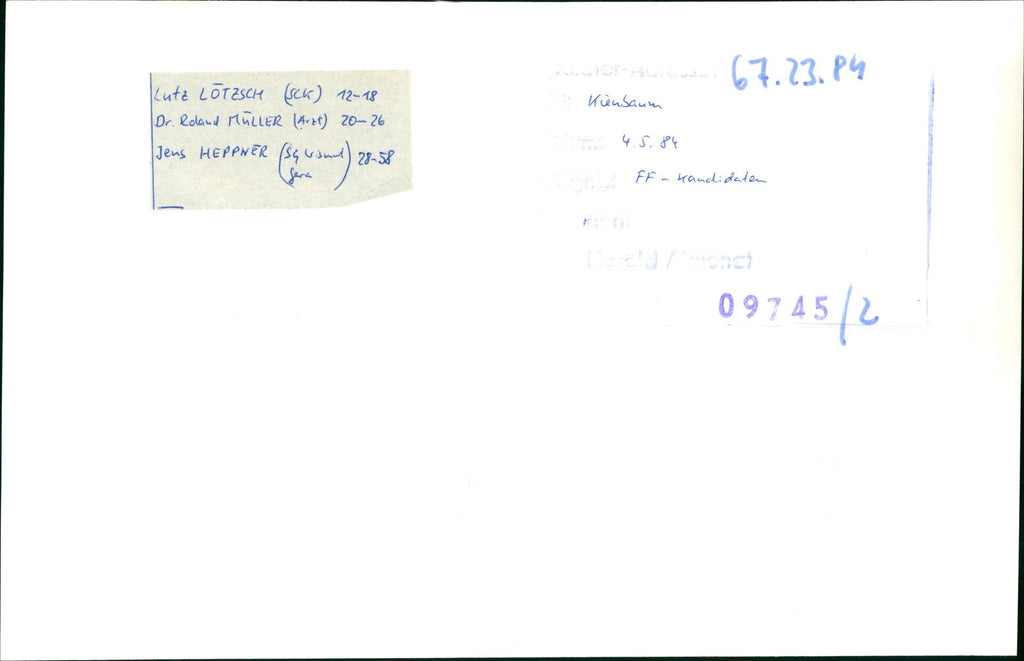 Lutz LÖTZSCH (SCK) 12-18
Dr. Roland MÜLLER (Arzt) 20-26
Jens HEPPNER (SG Wismut Gera) 28-58
67.23.84
Kienbaum
4.5.84
FF-Kandidaten
Harald Almonat
09745/2